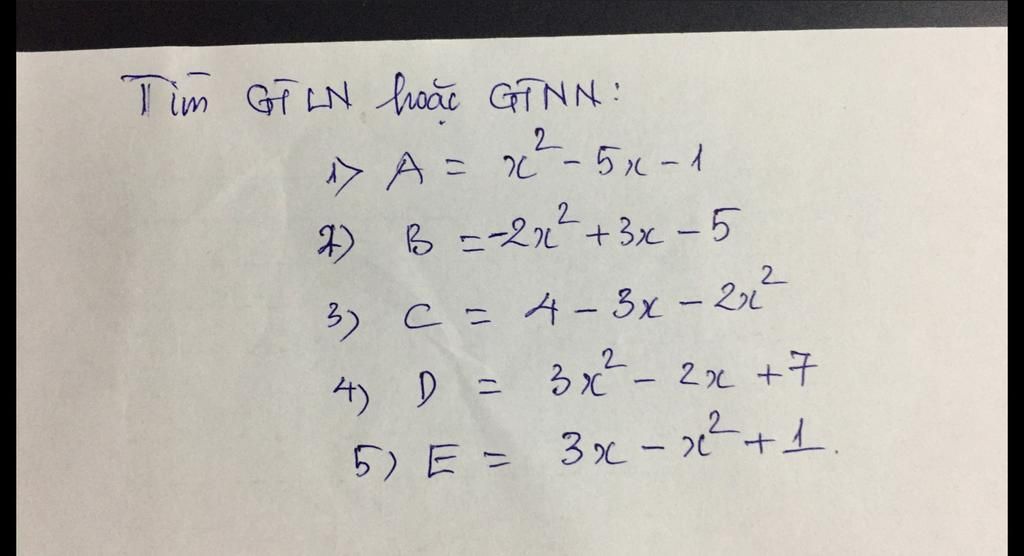 Tìm GTLN hoặc GTNN:
1) A = x² - 5x - 1
2) B = -2x² + 3x - 5
3) C = 4 - 3x - 2x²
4) D = 3x² - 2x + 7
5) E = 3x - x² + 1.